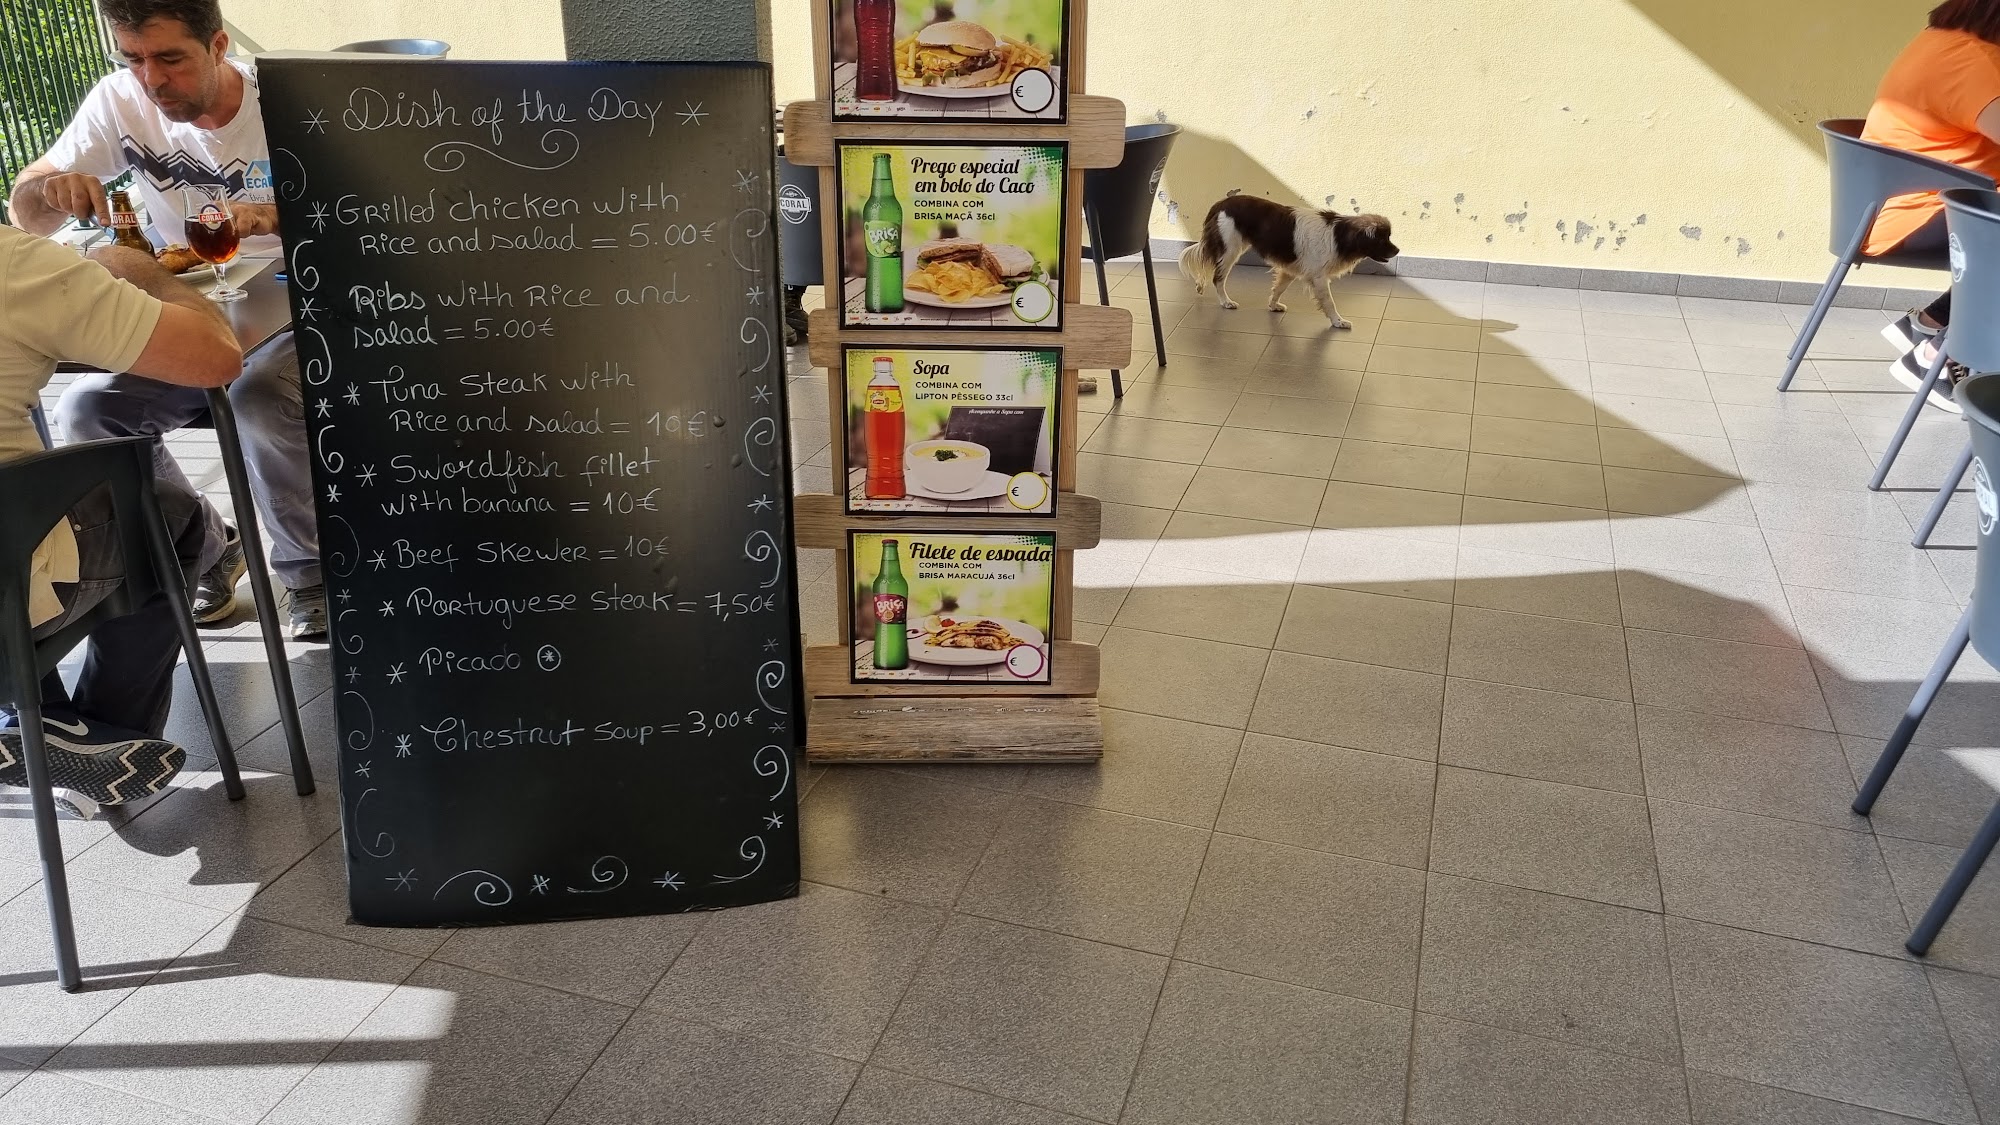 * Dish of the Day *
* Grilled chicken with
Rice and salad = 5.00€
Ribs with Rice and
salad = 5.00€
* Tuna Steak with
Rice and salad = 10€
* Swordfish fillet
with banana = 10€
* Beef Skewer = 10€
* Portuguese Steak = 7,50€
* Picado
* Chestnut Soup = 3,00€
€
Prego especial
em bolo do Caco
COMBINA COM
BRISA MAÇÃ 36cl
BRISA
€
Sopa
COMBINA COM
LIPTON PÊSSEGO 33cl
Acompanhe a Sopa com
€
Filete de espada
COMBINA COM
BRISA MARACUJÁ 36cl
BRISA
€
CORAL
CORAL
CORAL
ECA